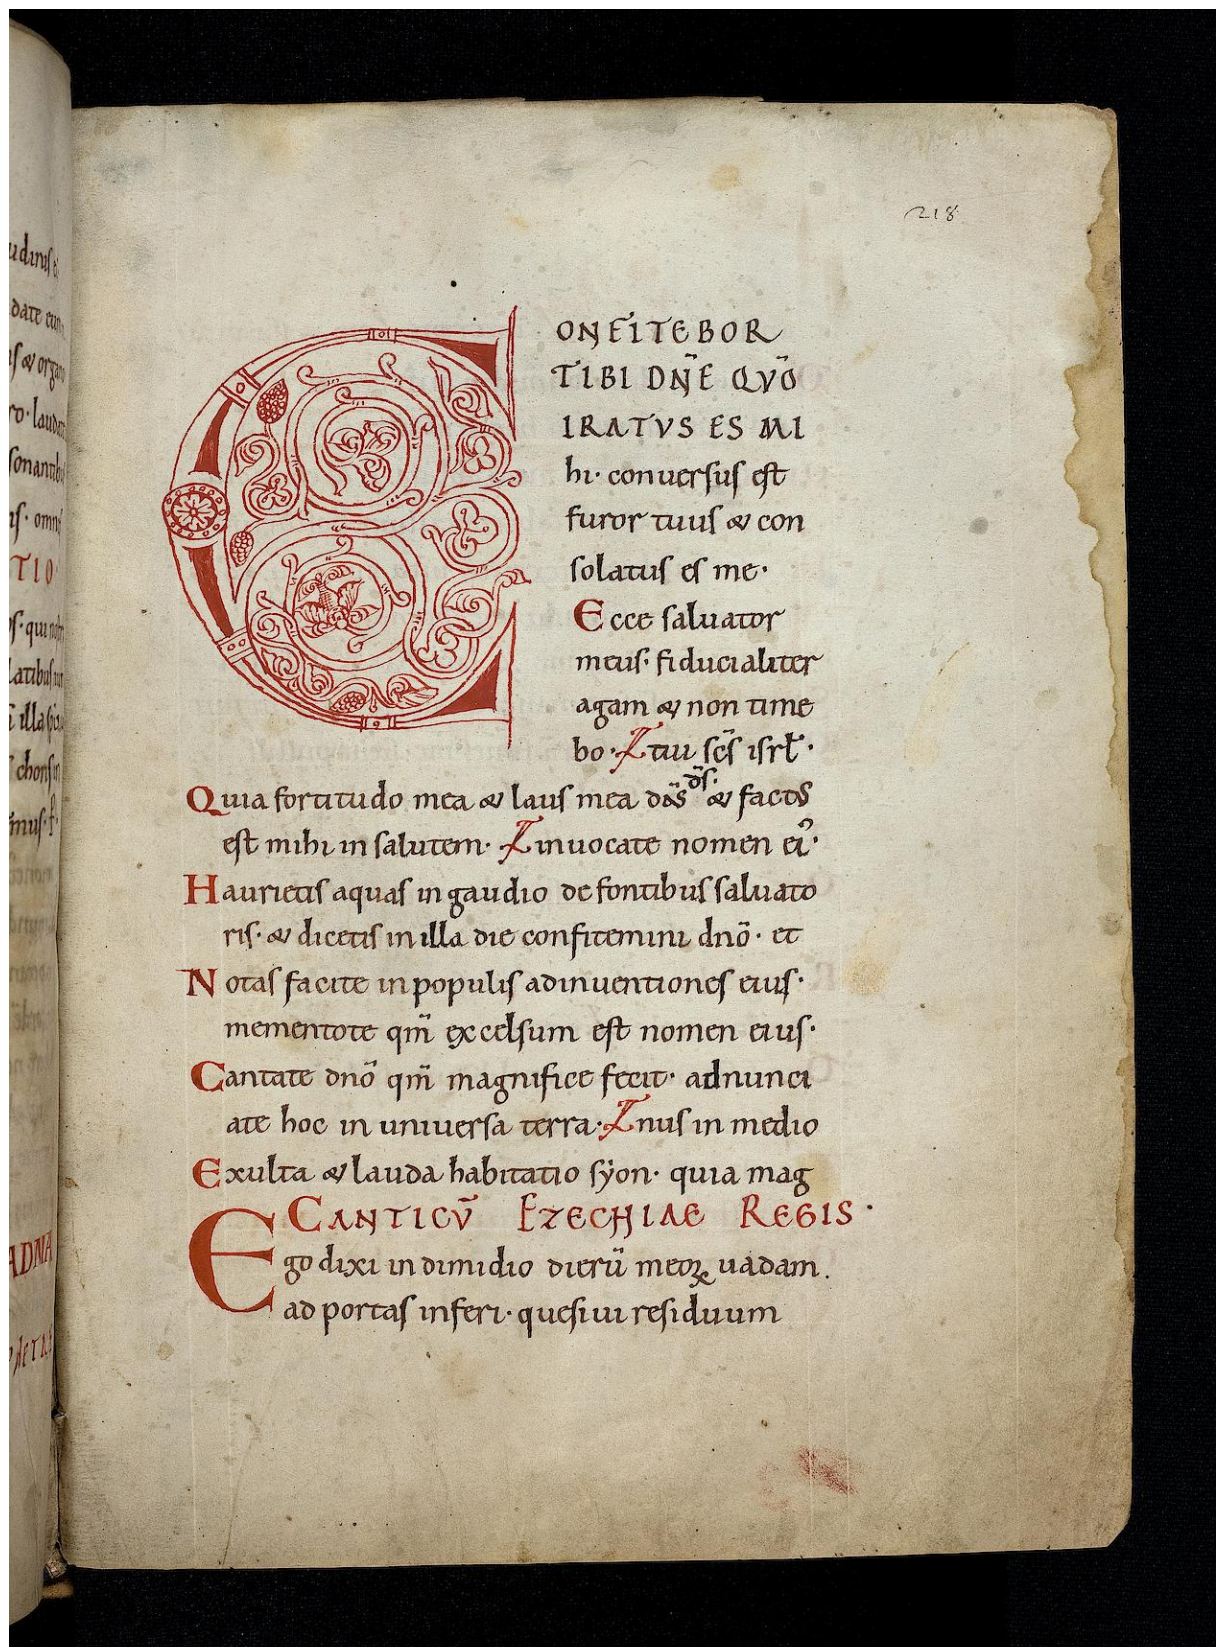 218
CONFITEBOR
TIBI DN̄E QVŌ
IRATVS ES MI
hi· conuersus est
furor tuus & con
solatus es me·
Ecce saluator
meus· fiducialiter
agam & non time
bo· tuu sc̄s isrl̄·
Quia fortitudo mea & laus mea dn̄s d̄s· & factus
est mihi in salutem· inuocate nomen ei᾿·
Haurietis aquas in gaudio de fontibus saluato
ris· & dicetis in illa die confitemini dnō· et
Notas facite in populis adinuentiones eius·
mementote qm̄ excelsum est nomen eius·
Cantate dnō qm̄ magnifice fecit· adnunci
ate hoc in uniuersa terra· nus in medio
Exulta & lauda habitatio sẏon· quia mag
CANTICV̄ EZECHIAE REGIS·
Ego dixi in dimidio dierū meoꝝ uadam.
ad portas inferi· quesiui residuum